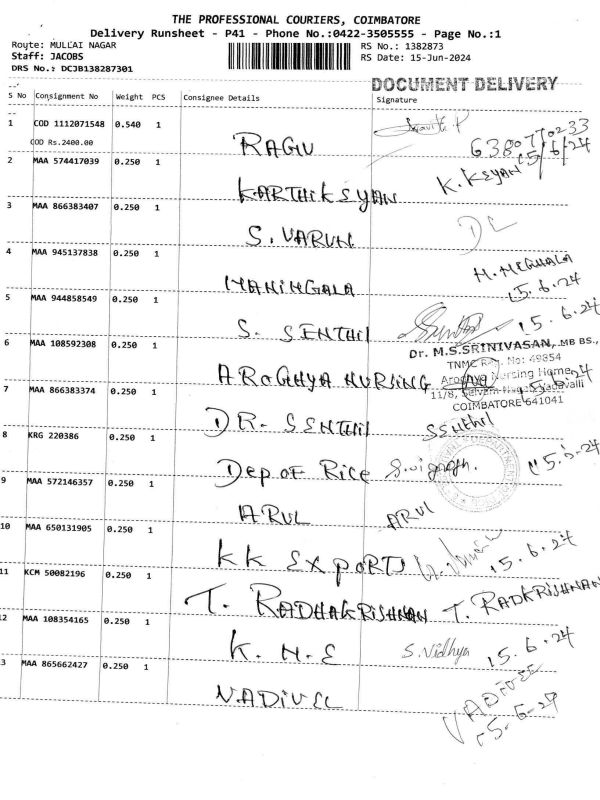 THE PROFESSIONAL COURIERS, COIMBATORE
Delivery Runsheet - P41 - Phone No.:0422-3505555 - Page No.:1
Route: MULLAI NAGAR RS No.: 1382873
Staff: JACOBS RS Date: 15-Jun-2024
DRS No.: DCJB138287301
DOCUMENT DELIVERY
S No Consignment No Weight PCS Consignee Details Signature
1 COD 1112071548 0.540 1 RAGU
COD Rs.2400.00 15/6/24
2 MAA 574417039 0.250 1 KARTHIKSYAN K. KSYAN
3 MAA 866383407 0.250 1 S. VARUN
4 MAA 945137838 0.250 1 MANINGALA M. MEGHALA
15.6.24
5 MAA 944858549 0.250 1 S. SENTHIL 15.6.24
Dr. M.S.SRINIVASAN, MB BS.,
TNMC Reg. No: 49854
6 MAA 108592308 0.250 1 AROGHYA NURSING
Arogya Nursing Home
11/8, Selvam Nagar, Vadavalli
COIMBATORE 641041
7 MAA 866383374 0.250 1 DR. SSNTHIL SSNthil
8 KRG 220386 0.250 1 Dep OF Rice 15.6.24
9 MAA 572146357 0.250 1 ARUL ARUL
10 MAA 650131905 0.250 1 KK EXPORTS 15.6.24
11 KCM 50082196 0.250 1 T. RADHAKRISHNAN T. RADKRISHNAN
2 MAA 108354165 0.250 1 K. N. E S. Vidhya 15.6.24
3 MAA 865662427 0.250 1 VADIVEL VADIVEL
15-6-24